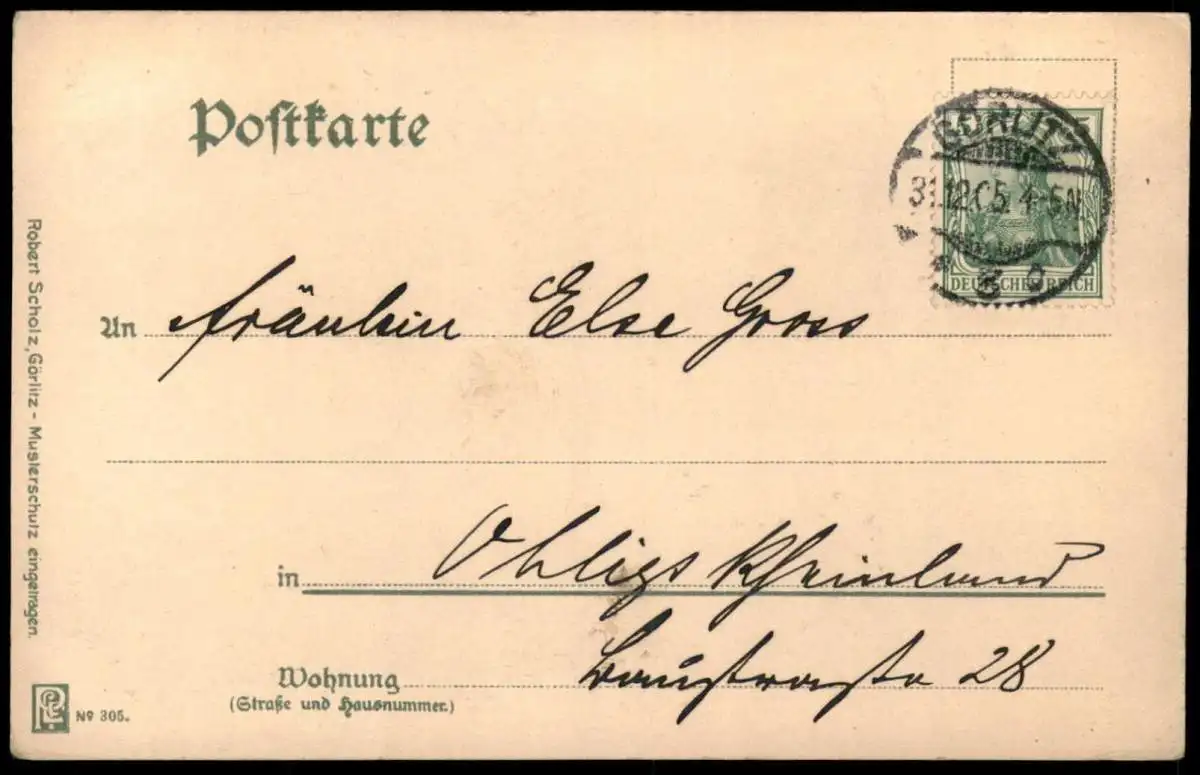 Postkarte
GÖRLITZ
31.12.05. 4-5N
DEUTSCHES REICH
An Fräulein Else Gross
in Ohligs Rheinland
Wohnung Baustrasse 28
(Straße und Hausnummer.)
Robert Scholz, Görlitz - Musterschutz eingetragen.
Nº 305.